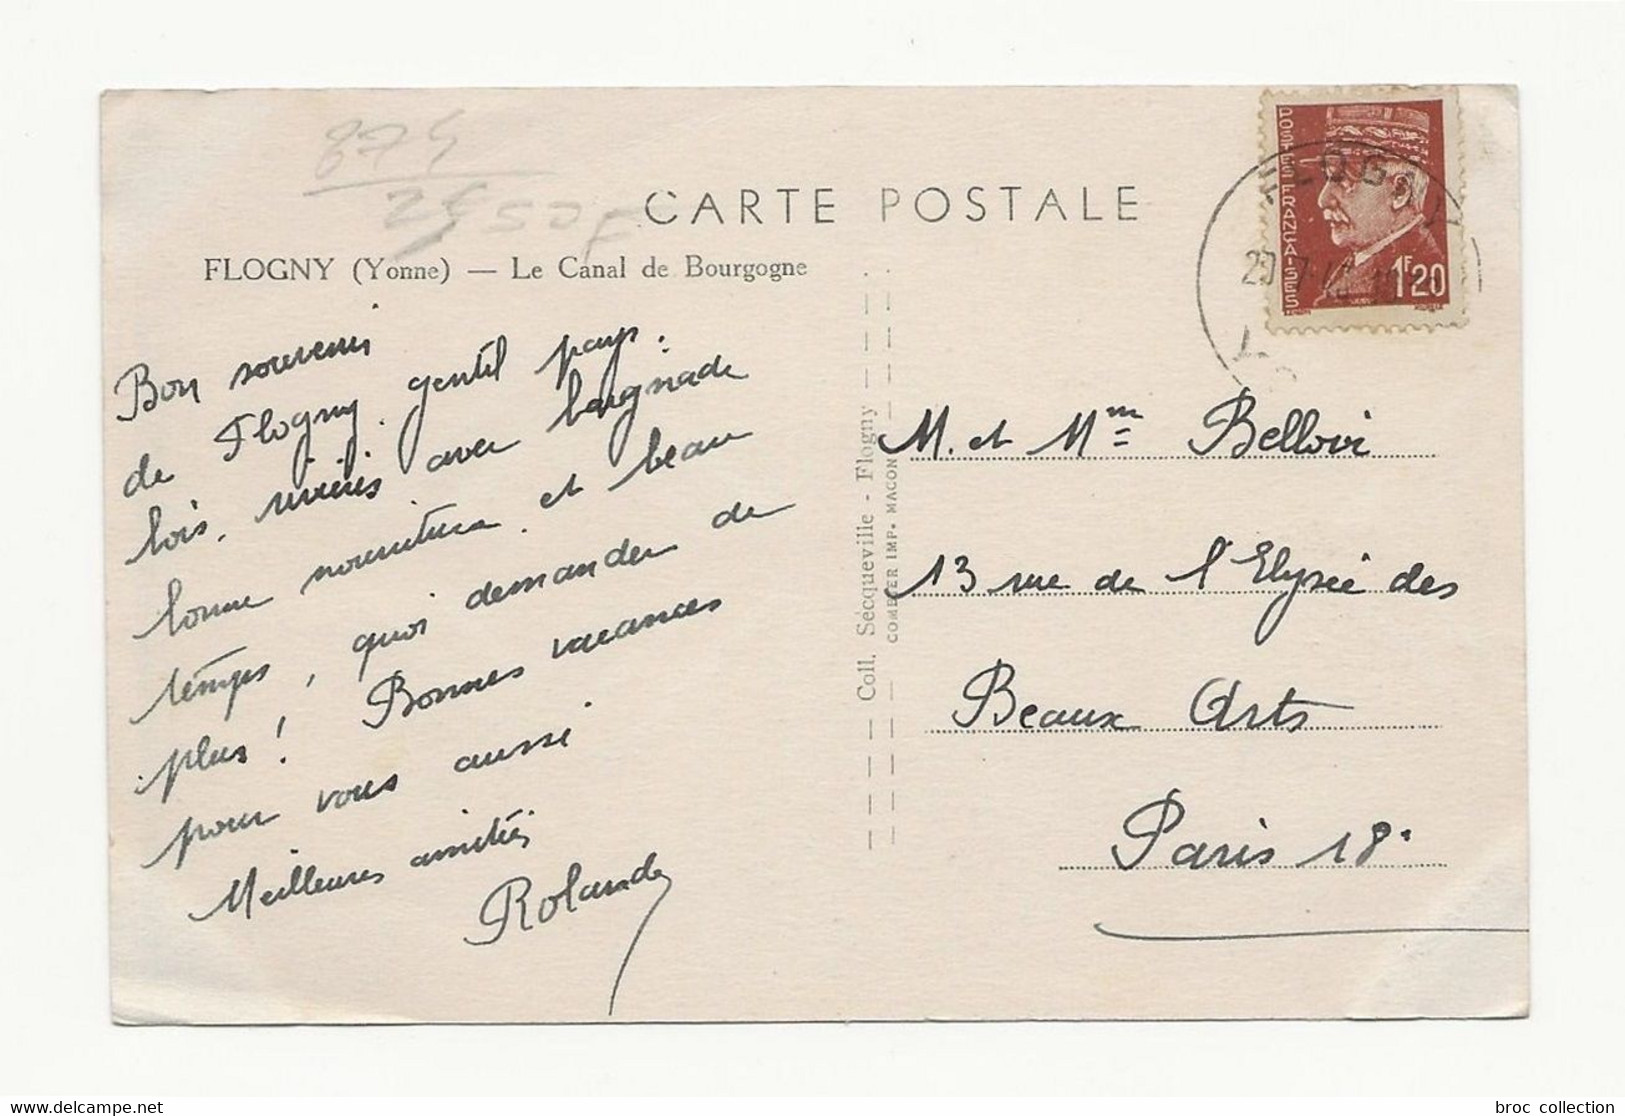 874
2550F
CARTE POSTALE
FLOGNY (Yonne) — Le Canal de Bourgogne
POSTES FRANÇAISES
1F20
FLOGNY
Bon souvenir
de Flogny. gentil pays:
bois, rivières avec baignade
bonne nourriture et beau
temps, quoi demander de
plus! Bonnes vacances
pour vous aussi
Meilleures amitiés
Rolande
Coll. Sécqueville - Flogny
COMBIER IMP. MACON
M. et Mme Bellovi
13 rue de l'Elysée des
Beaux Arts
Paris 18.
broc collection